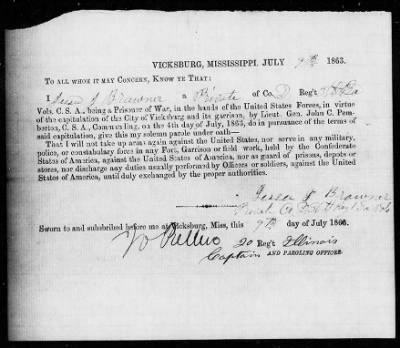 VICKSBURG, MISSISSIPPI, JULY 9th 1863.
TO ALL WHOM IT MAY CONCERN, KNOW YE THAT:
I Jesse J Brawner a Private of Co. D Reg't La
Vols. C. S. A., being a Prisoner of War, in the hands of the United States Forces, in virtue
of the capitulation of the City of Vicksburg and its garrison, by Lieut. Gen. John C. Pem-
berton, C. S. A., Commanding, on the 4th day of July, 1863, do in pursuance of the terms of
said capitulation, give this my solemn parole under oath—
That I will not take up arms again against the United States, nor serve in any military,
police, or constabulary force in any Fort, Garrison or field work, held by the Confederate
States of America, against the United States of America, nor as guard of prisons, depots or
stores, nor discharge any duties usually performed by Officers or soldiers, against the United
States of America, until duly exchanged by the proper authorities.
Jesse J Brawner
Private
Sworn to and subscribed before me at Vicksburg, Miss, this 9th day of July 1863.
20 Reg't Illinois
Captain AND PAROLING OFFICER.